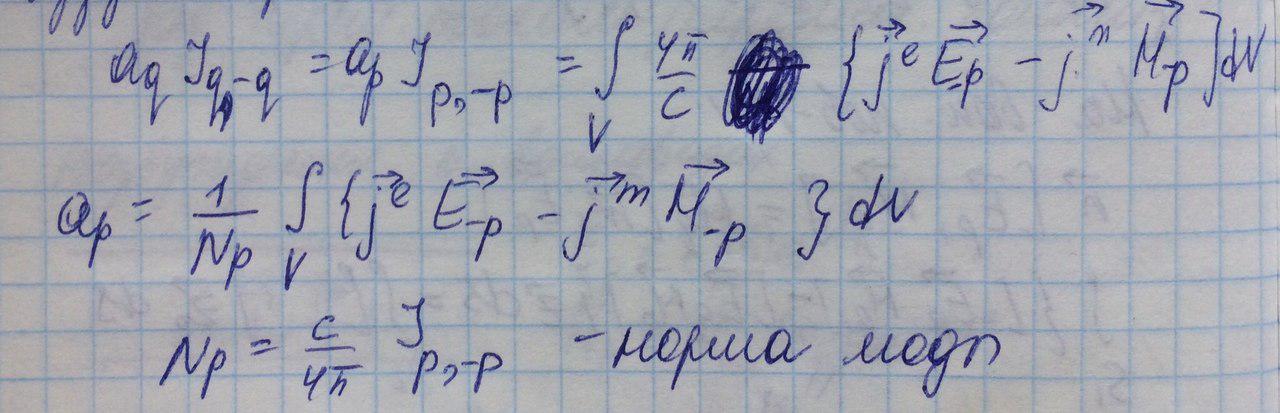 a_q J_{q,-q} = a_p J_{p,-p} = ∫_V 4π/c {j⃗^e E⃗_{-p} - j⃗^m H⃗_{-p}} dV
a_p = 1/N_p ∫_V {j⃗^e E⃗_{-p} - j⃗^m H⃗_{-p}} dV
N_p = c/4π J_{p,-p} - норма моды